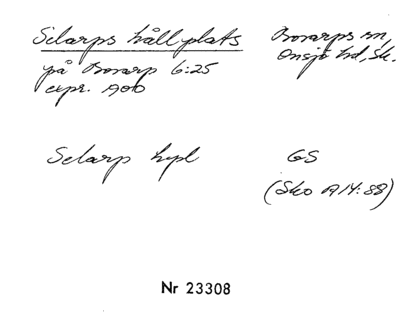 Selarps hållplats
Bosarps sn,
Onsjö hd, Sk.
på Bosarp 6:25
expr. 1900
Selarp hpl
GS
(Sko A14:88)
Nr 23308